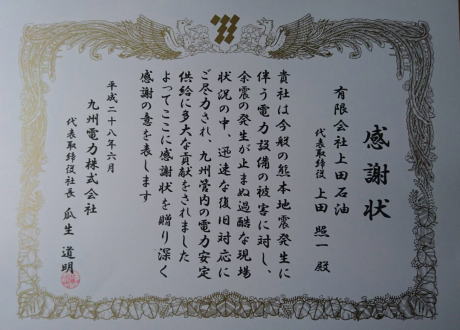 感謝状
有限会社上田石油
代表取締役 上田 照一 殿
貴社は今般の熊本地震発生に
伴う電力設備の被害に対し、
余震の発生が止まぬ過酷な現場
状況の中、迅速な復旧対応に
ご尽力され、九州管内の電力安定
供給に多大な貢献をされました
よってここに感謝状を贈り深く
感謝の意を表します
平成二十八年六月
九州電力株式会社
代表取締役社長 瓜生 道明